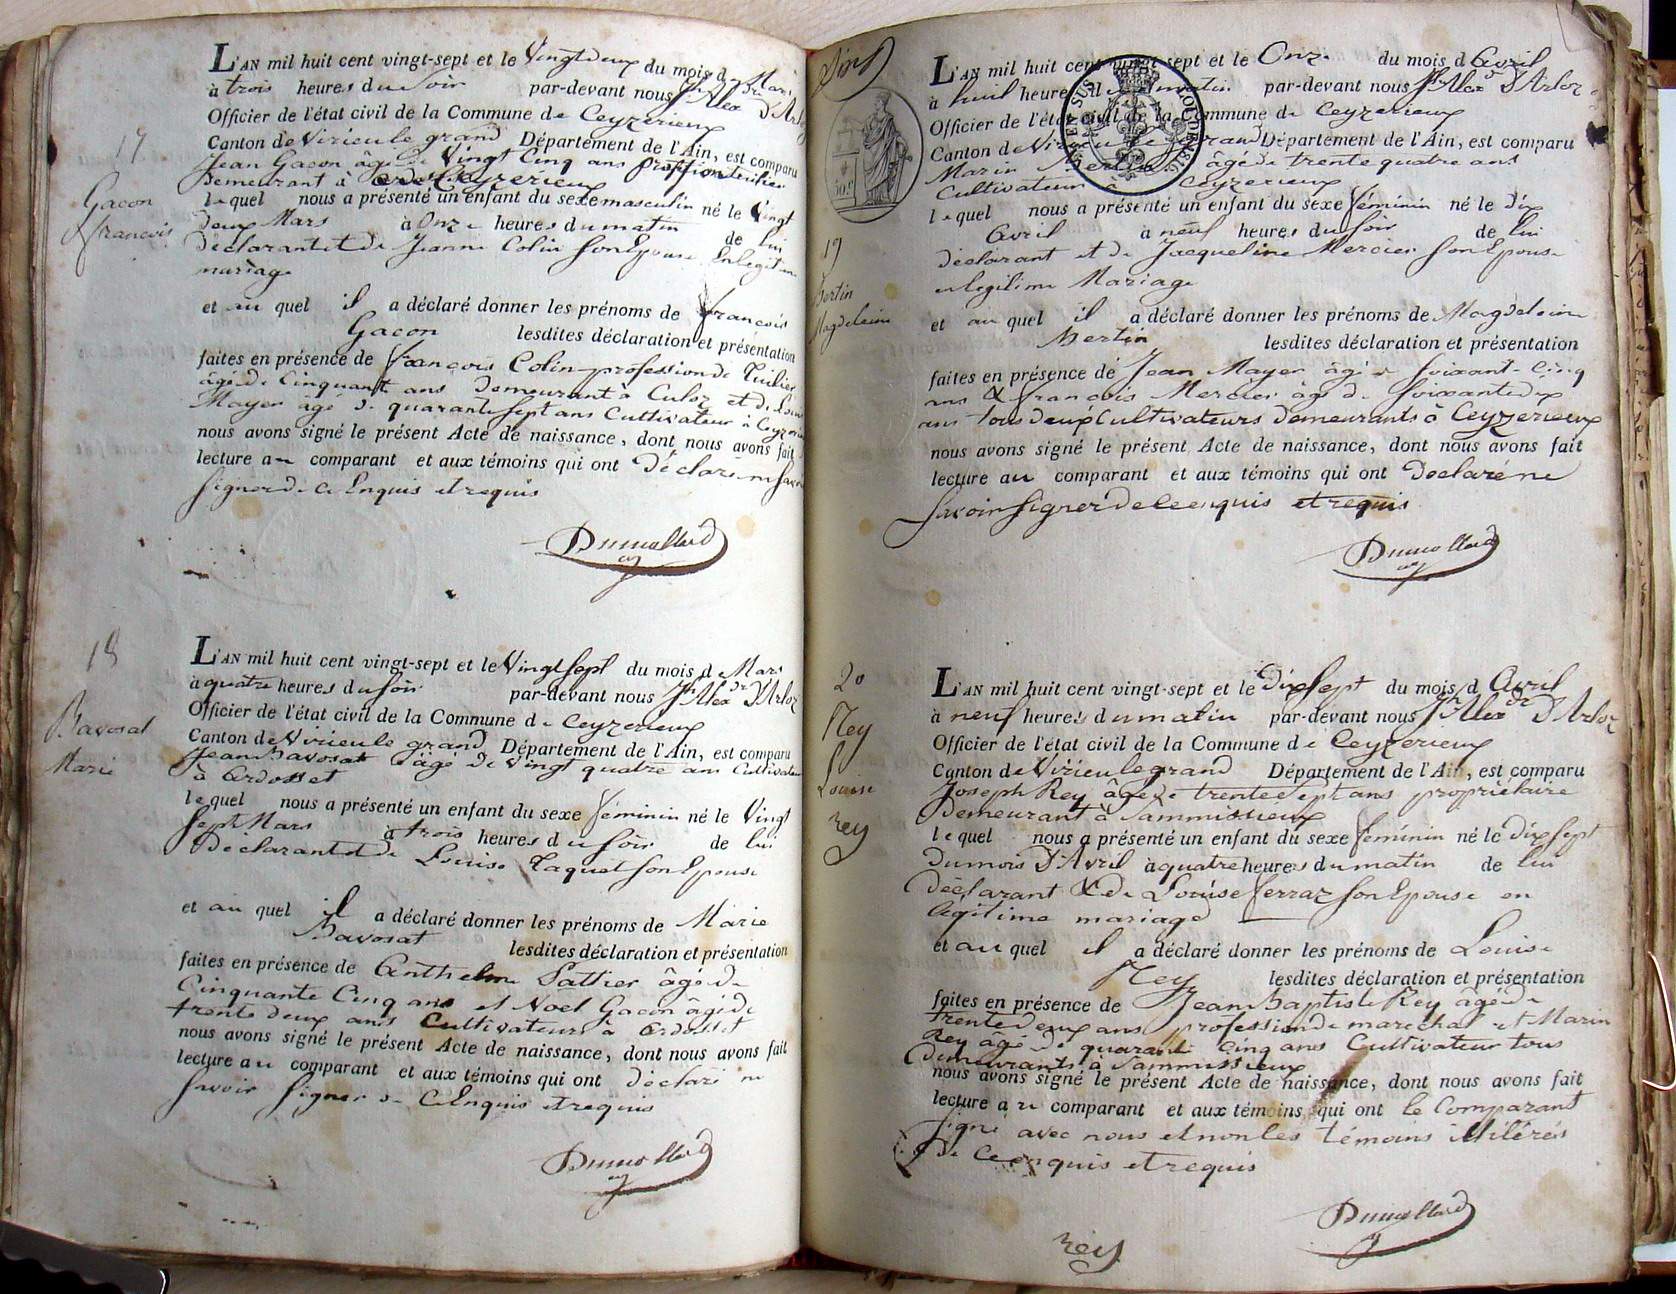 17
Gacon
françois
L'AN mil huit cent vingt-sept et le Vingt deux du mois de Mars
à trois heures du Soir par-devant nous Jh Alex dre D'Arloz
Officier de l'état civil de la Commune de Ceyzerieux
Canton de Virieu le grand Département de l'Ain, est comparu
Jean Gacon âgé de Vingt Cinq ans profession tuilier
Demeurant à Ceyzerieux
lequel nous a présenté un enfant du sexe masculin né le Vingt
deux Mars à Onze heures du matin de lui
déclarant et de Jeanne Colin Son Epouse En legitime
mariage
et au quel il a déclaré donner les prénoms de françois
Gacon lesdites déclaration et présentation
faites en présence de françois Colin profession de Tuilier
âgé de Cinquante ans Demeurant à Culoz et de Louis
Mayer âgé de quarante Sept ans Cultivateur à Ceyzerieux
nous avons signé le présent Acte de naissance, dont nous avons fait
lecture au comparant et aux témoins qui ont Déclaré ne Savoir
Signer de Ce Enquis et requis
Dumollard
18
Bavosat
Marie
L'AN mil huit cent vingt-sept et le Vingt Sept du mois de Mars
à quatre heures du Soir par-devant nous Jh Alex dre D'Arloz
Officier de l'état civil de la Commune de Ceyzerieux
Canton de Virieu le grand Département de l'Ain, est comparu
Jean Bavosat âgé De Vingt quatre ans Cultivateur
à Ardosset
lequel nous a présenté un enfant du sexe féminin né le Vingt
Sept Mars à trois heures du Soir de lui
Déclarant et de Louise Taquet Son Epouse
et au quel il a déclaré donner les prénoms de Marie
Bavosat lesdites déclaration et présentation
faites en présence de Anthelme Pattier âgé de
Cinquante Cinq ans et Noel Gacon âgé de
trente deux ans Cultivateurs à Ardosset
nous avons signé le présent Acte de naissance, dont nous avons fait
lecture au comparant et aux témoins qui ont déclaré ne
Savoir Signer de Ce Enquis et requis
Dumollard
19
Bertin
Magdeleine
L'AN mil huit cent vingt-sept et le Onze du mois d'Avril
à huit heures du matin par-devant nous Jh Alex dre D'Arloz
Officier de l'état civil de la Commune de Ceyzerieux
Canton de Virieu le grand Département de l'Ain, est comparu
Marin Bertin âgé de trente quatre ans
Cultivateur à Ceyzerieux
lequel nous a présenté un enfant du sexe féminin né le dix
Avril à neuf heures du Soir de lui
déclarant et de Jacqueline Mercier Son Epouse
en legitime Mariage
et au quel il a déclaré donner les prénoms de Magdeleine
Bertin lesdites déclaration et présentation
faites en présence de Jean Mayer âgé de Soixante Cinq
ans & françois Mercier âgé de Soixante dix
ans tous deux Cultivateurs demeurants à Ceyzerieux
nous avons signé le présent Acte de naissance, dont nous avons fait
lecture au comparant et aux témoins qui ont Declaré ne
Savoir Signer de Ce enquis et requis
Dumollard
20
Rey
Louise
rey
L'AN mil huit cent vingt-sept et le Dix Sept du mois d'Avril
à neuf heures du matin par-devant nous Jh Alex dre D'Arloz
Officier de l'état civil de la Commune de Ceyzerieux
Canton de Virieu le grand Département de l'Ain, est comparu
Joseph Rey âgé de trente Sept ans propriétaire
Demeurant à Sammissieux
lequel nous a présenté un enfant du sexe féminin né le Dix Sept
Du mois D'Avril à quatre heures du matin de lui
Déclarant & de Louise ferraz Son Epouse en
légitime mariage
et au quel il a déclaré donner les prénoms de Louise
Rey lesdites déclaration et présentation
faites en présence de Jean Baptiste Rey âgé de
trente deux ans profession de marechal et Marin
Rey âgé de quarante Cinq ans Cultivateur tous
Demeurants à Sammissieux
nous avons signé le présent Acte de naissance, dont nous avons fait
lecture au comparant et aux témoins qui ont le Comparant
Signé avec nous et non les témoins illitérés
De Ce enquis et requis
Dumollard
rey